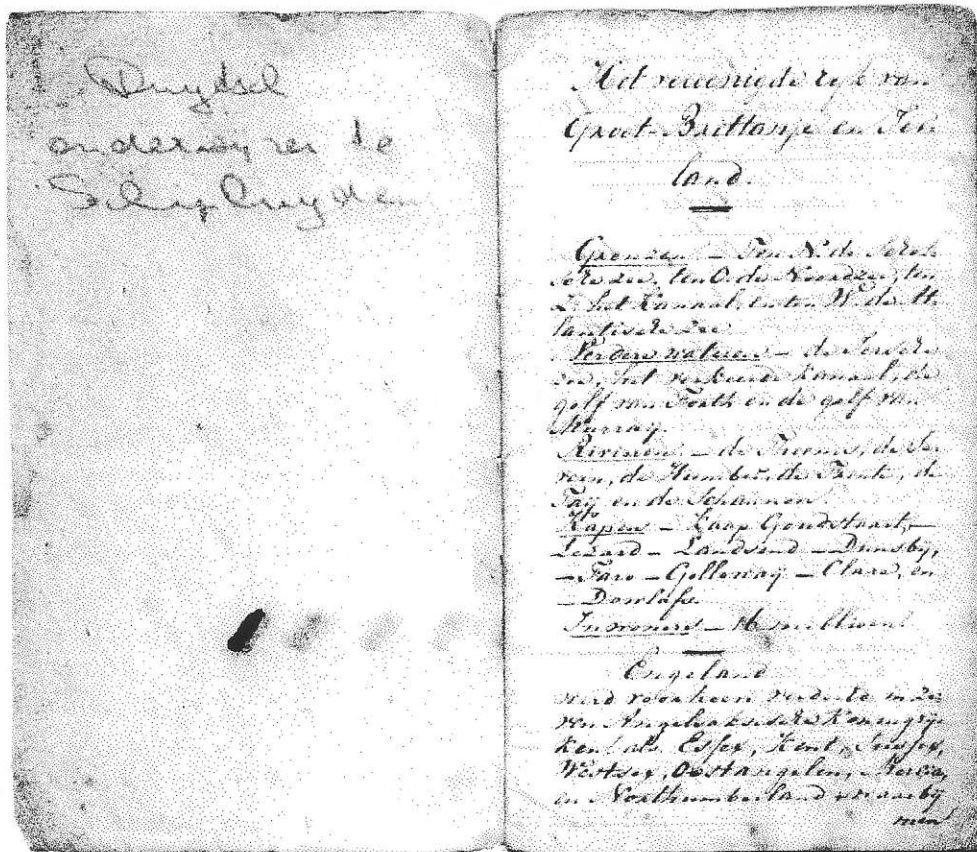 onderwyzer te
Het vereenigde ryk van
Groot-Brittanje en Ier
land.
Grenzen – Ten N. de Schot
sche zee, ten O. de Noordzee, ten
Z. het Kanaal, en ten W. de At
lantische zee
Verdere wateren – de Iersche
zee, het verkeerde kanaal, de
golf van Forth en de golf van
Murray.
Rivieren – de Theems, de Se
vern, de Humber, de Trente, de
Taij en de Schannon
Kapen – Kaap Goudstaart, –
Lezard – Landsend – Dunsby,
– Faro – Golloway – Clare, en
Inwoners – 16 millioen
Engeland
werd voorheen verdeeld in ze
ven Angelsaksische Koningrij
ken als Essex, Kent, Sussex,
Westsex, Oostangelen, Mercia,
en Northumberland waarby
men